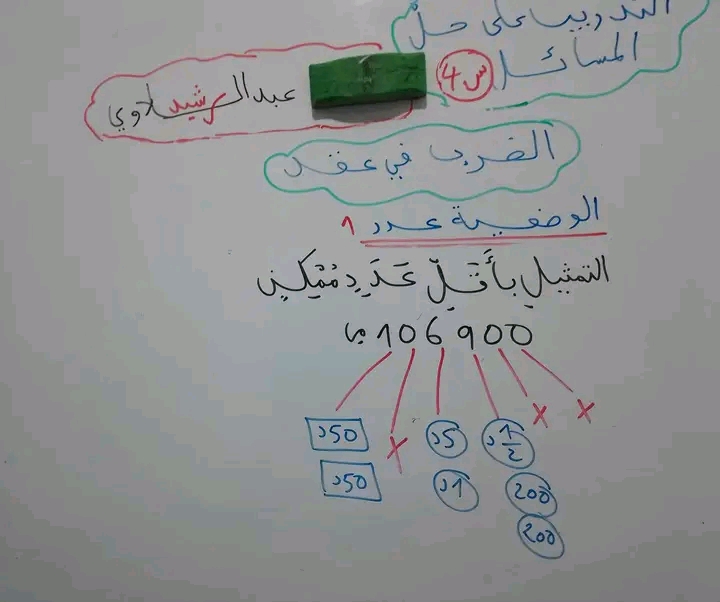 التدريب على حل
المسائل س4
عبد الرشيد لاوي
الضرب في عقد
الوضعية عدد 1
التمثيل بأَقَلّ عَدَدٍ مُمْكِنٍ
106 900 مي
50د × 5د 1/2د × ×
50د 1د 200
200